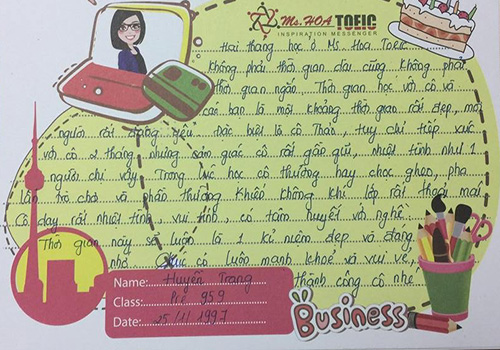 Ms.HOA TOEIC
INSPIRATION MESSENGER
Hai tháng học ở Ms Hoa Toeic
không phải thời gian dài cũng không phải
thời gian ngắn. Thời gian học với cô và
các bạn là một khoảng thời gian rất đẹp, mọi
người rất đáng yêu. Đặc biệt là cô Thảo, tuy chỉ tiếp xúc
với cô 2 tháng nhưng cảm giác cô rất gần gũi, nhiệt tình như 1
người chị vậy. Trong lúc học cô thường hay chọc ghẹo, pha
lẫn trò chơi và phần thưởng khiến không khí lớp rất thoải mái
Cô dạy rất nhiệt tình, vui tính, có tâm huyết với nghề.
Thời gian này sẽ luôn là 1 kỉ niệm đẹp và đáng
nhớ. Chúc cô luôn mạnh khoẻ và vui vẻ,
thành công cô nhé
Name: Huyền Trang
Class: Pre 959
Date: 25/1/1997
Business